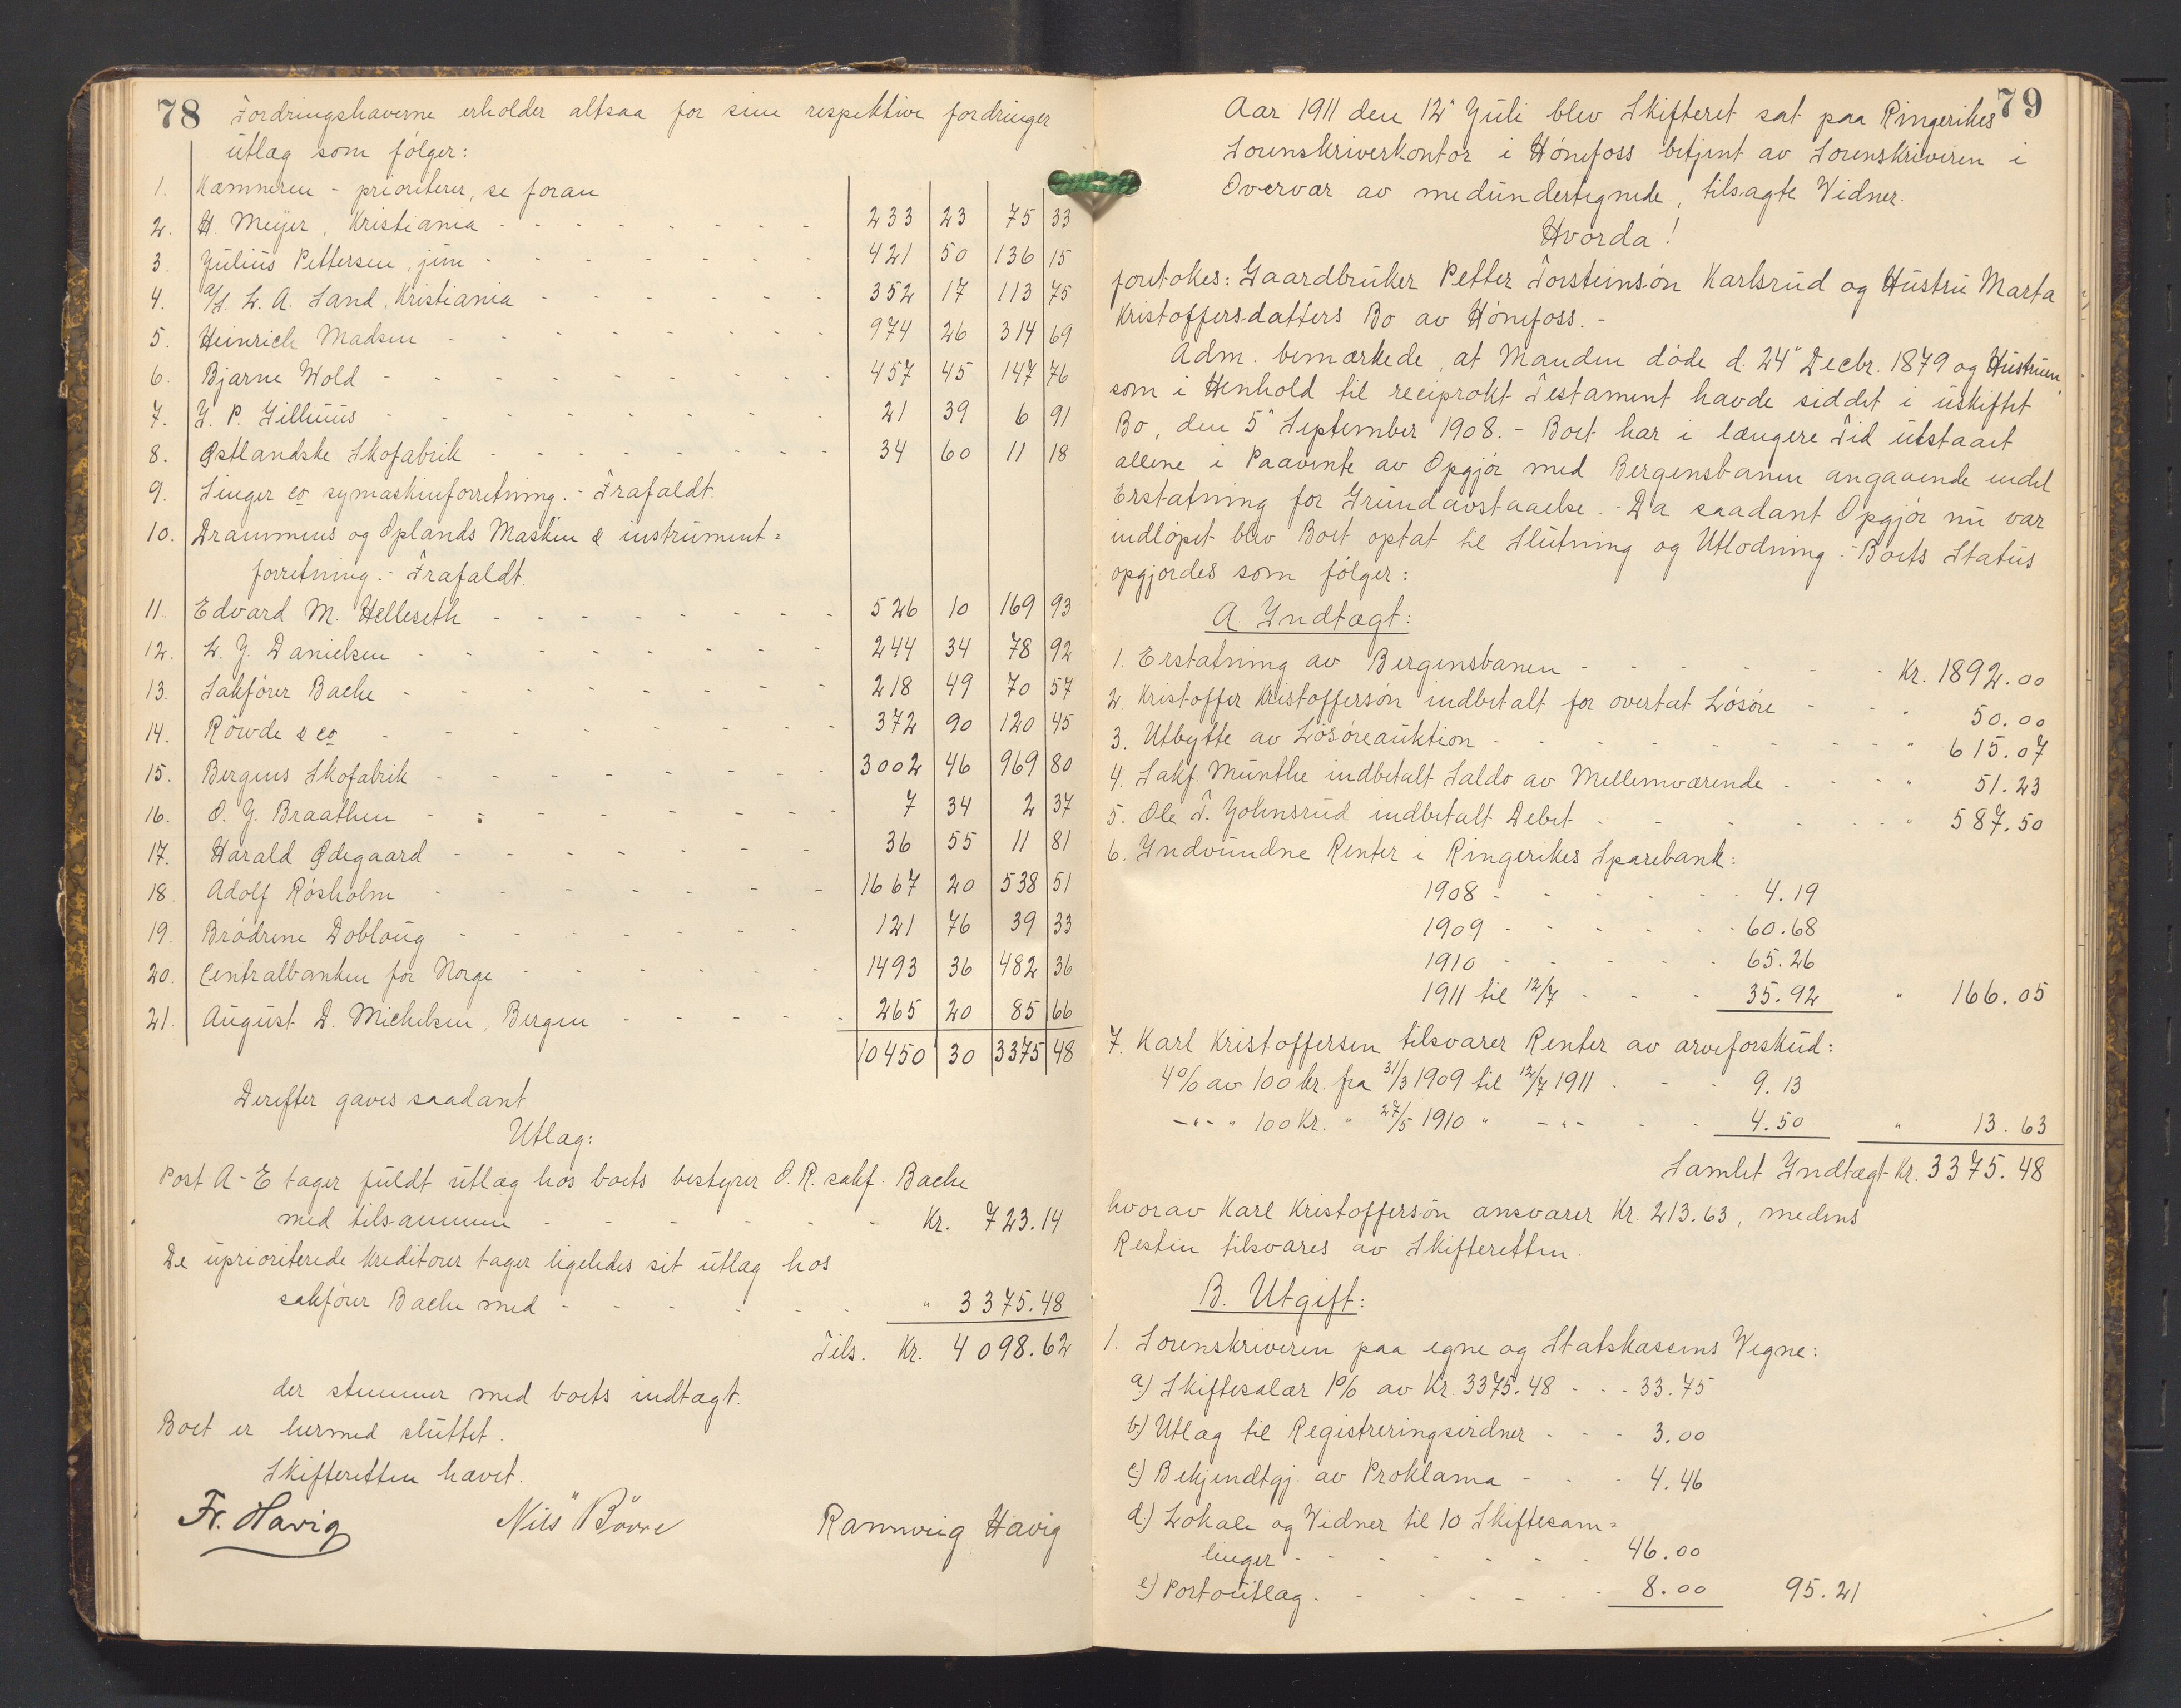 78
Fordringshaverne erholder altsaa for sine respektive fordringer
utlæg som følger:
1. Kæmneren - prioriterer, se foran
2. H. Meyer, Kristiania - 233 23 75 33
3. Julius Pettersen, jun - 421 50 136 15
4. A/S. L. A. Sand, Kristiania - 352 17 113 75
5. Heinrich Madsen - 974 26 314 69
6. Bjarne Wold - 457 45 147 76
7. J. P. Jillnæs - 21 39 6 91
8. Østlandske Skofabrik - 34 60 11 18
9. Singer co symaskinforretning. - Frafaldt.
10. Drammens og Oplands Maskin & instrument=
forretning. - Frafaldt.
11. Edvard M. Helleseth - 526 10 169 93
12. L. J. Danielsen - 244 34 78 92
13. Sakfører Bache - 218 49 70 57
14. Röwde & co - 372 90 120 45
15. Bergens Skofabrik - 3002 46 969 80
16. O. J. Braathen - 7 34 2 37
17. Harald Ødegaard - 36 55 11 81
18. Adolf Røsholm - 1667 20 538 51
19. Brødrene Dobloug - 121 76 39 33
20. Centralbanken for Norge - 1493 36 482 36
21. August D. Michelsen, Bergen - 265 20 85 66
10450 30 3375 48
Derefter gaves saadant
Utlæg:
Post A-E tager fuldt utlæg hos boets bestyrer O.R. sakf. Bache
med tilsammen - Kr. 723.14
De uprioriterede kreditorer tager ligeledes sit utlæg hos
sakfører Bache med - " 3375.48
Tils. Kr. 4098.62
der stemmer med boets indtægt.
Boet er hermed sluttet.
Skifteretten hævet.
Fr. Havig Nils Böwre Rannveig Havig
79
Aar 1911 den 12" Juli blev Skifteret sat paa Ringerikes
Sorenskriverkontor i Hønefoss betjent av Sorenskriveren i
Overvær av medundertegnede, tilsagte Vidner.
Hvorda!
foretokes: Gaardbruker Petter Torsteinsøn Karlsrud og Hustru Marta
Kristoffersdatters Bo av Hønefoss. -
Adm. bemærkede, at Manden døde d. 24" Decbr. 1879 og Hustruen,
som i Henhold til reciprokt Testament havde siddet i uskiftet
Bo, den 5" September 1908. - Boet har i længere Tid utstaaet
allene i Paavente av Opgjør med Bergensbanen angaaende endel
Erstatning for Grundavstaaelse. - Da saadant Opgjør nu var
indløpet blev Boet optat til Slutning og Utlodning. - Boets Status
opgjordes som følger:
A. Indtægt:
1. Erstatning av Bergensbanen - Kr. 1892.00
2. Kristoffer Kristoffersøn indbetalt for overtat Løsøre - " 50.00
3. Utbytte av Løsøreauktion - " 615.07
4. Sakf. Münthe indbetalt Saldo av Mellemværende - " 51.23
5. Ole T. Johnsrud indbetalt Debet - " 587.50
6. Indvundne Renter i Ringerikes Sparebank:
1908 - 4.19
1909 - 60.68
1910 - 65.26
1911 til 12/7 - 35.92 " 166.05
7. Karl Kristoffersen tilsvarer Renter av arveforskud:
4% av 100 kr. fra 31/3 1909 til 12/7 1911 - 9.13
-"- " 100 Kr. " 27/5 1910 " -"- - 4.50 " 13.63
Samlet Indtægt Kr. 3375.48
hvorav Karl Kristoffersøn ansvarer Kr. 213.63, medens
Resten tilsvares av Skifteretten.
B. Utgift:
1. Sorenskriveren paa egne og Statskassens Vegne:
a) Skiftesalær 1% av Kr. 3375.48 - 33.75
b) Utlæg til Registreringsvidner - 3.00
c) Bekjendtgj. av Proklama - 4.46
d) Lokale og Vidner til 10 Skiftesam=
linger - 46.00
e) Portoutlæg - 8.00 95.21